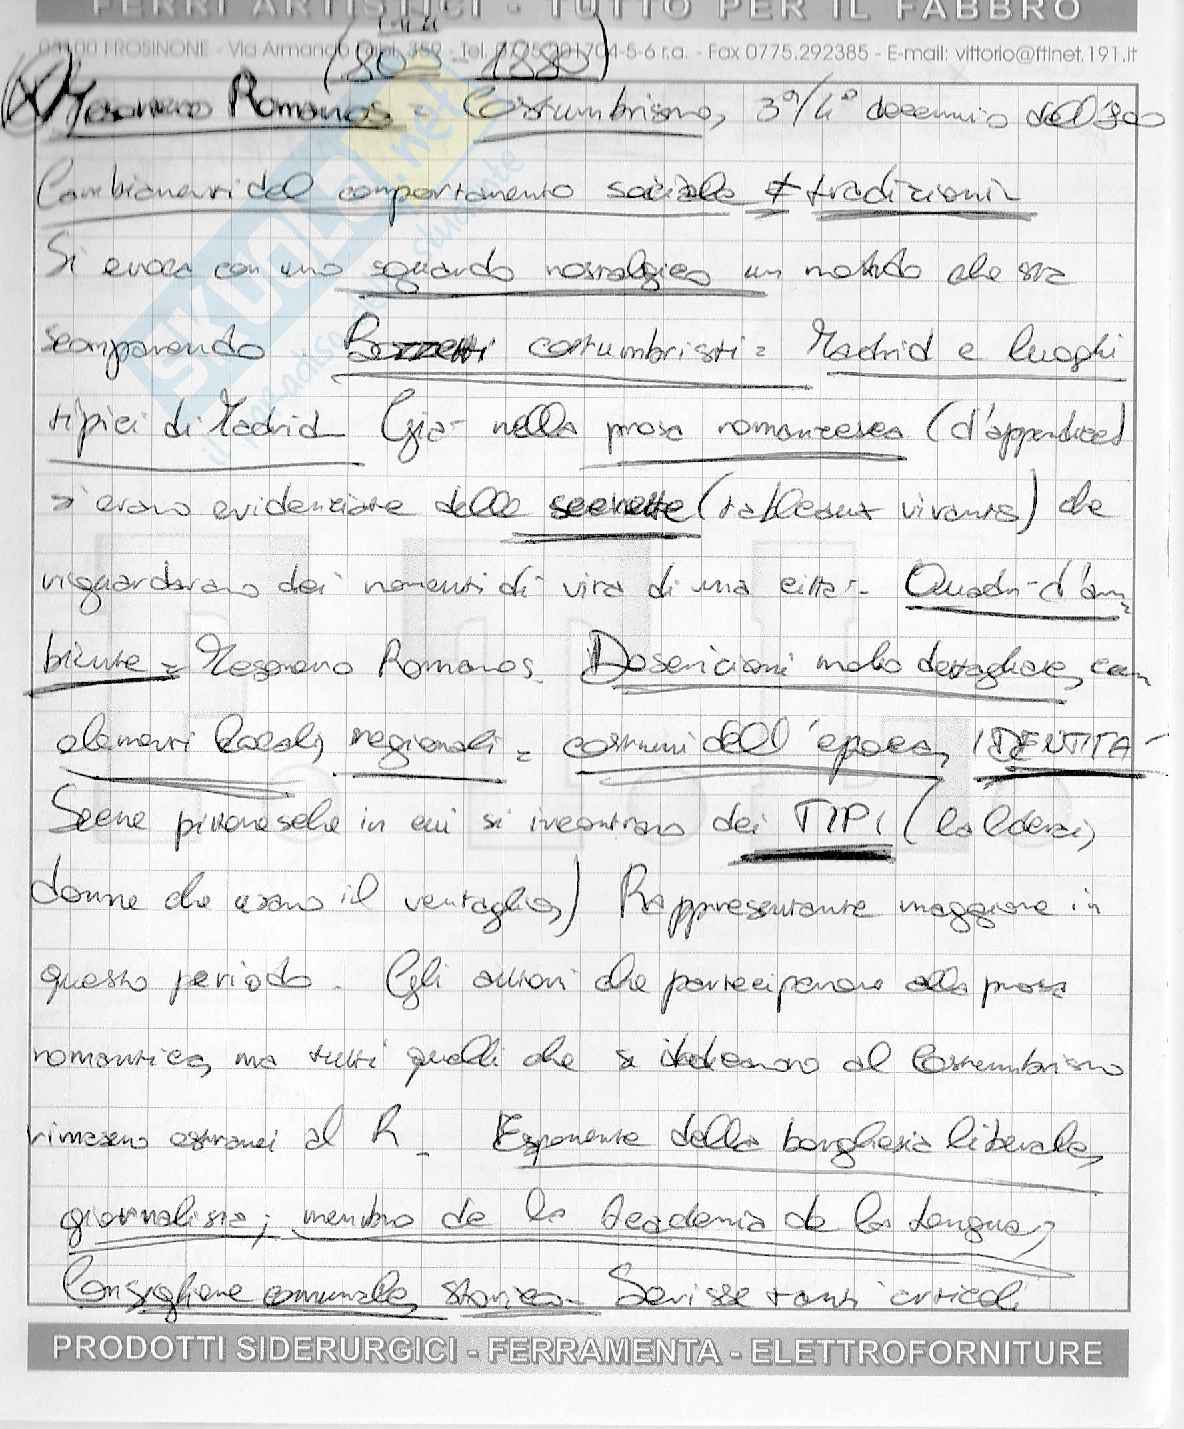 FERRI ARTISTICI - TUTTO PER IL FABBRO
03100 FROSINONE - Via Armando - Tel. - Fax 0775.292385 - E-mail: vittorio@ftinet.191.it
(1803 - 1880)
Mesonero Romanos = Costumbrismo, 3º/4º decennio dell'800
Cambiamenti del comportamento sociale ≠ tradizioni-
Si evoca con uno sguardo nostalgico un mondo che sta
scomparendo Bozzetti costumbristi = Madrid e luoghi
tipici di Madrid Già nella prosa romanzesca (d'appendice)
si erano evidenziate delle scenette (tableaux vivants) che
riguardavano dei momenti di vita di una città- Quadri d'am=
biente = Mesonero Romanos. Descrizioni molto dettagliate, con
elementi locali, regionali = costumi dell'epoca, IDENTITA-
Scene pittoresche in cui si incontrano dei TIPI (
donne che usano il ventaglio,) Rappresentante maggiore in
questo periodo. Gli autori che partecipano alla prosa
romantica, ma tutti quelli che si dedicano al Costumbrismo
rimasero estranei al R - Esponente della borghesia liberale,
giornalista; membro de la Academia de la Lengua,
Consigliere comunale, storico- Scrisse tanti articoli
PRODOTTI SIDERURGICI - FERRAMENTA - ELETTROFORNITURE
SKUOLA.net